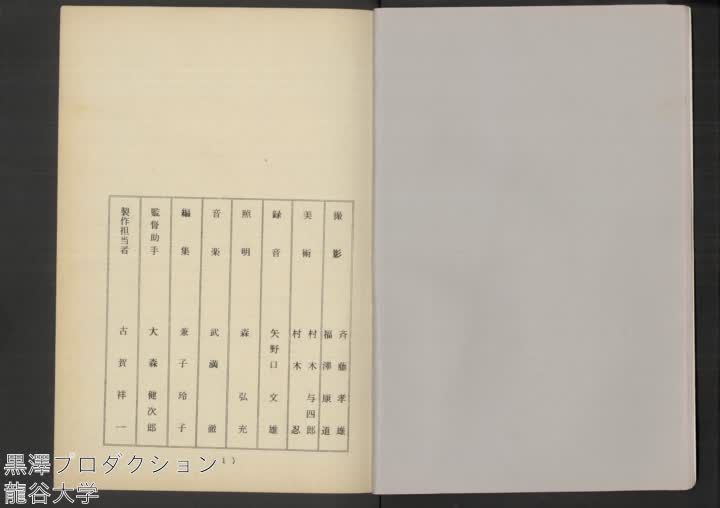 撮影 斉藤孝雄
福澤康道
美術 村木与四郎
村木忍
録音 矢野口文雄
照明 森弘充
音楽 武満徹
編集 兼子玲子
監督助手 大森健次郎
製作担当者 古賀祥一
黒澤プロダクション
龍谷大学